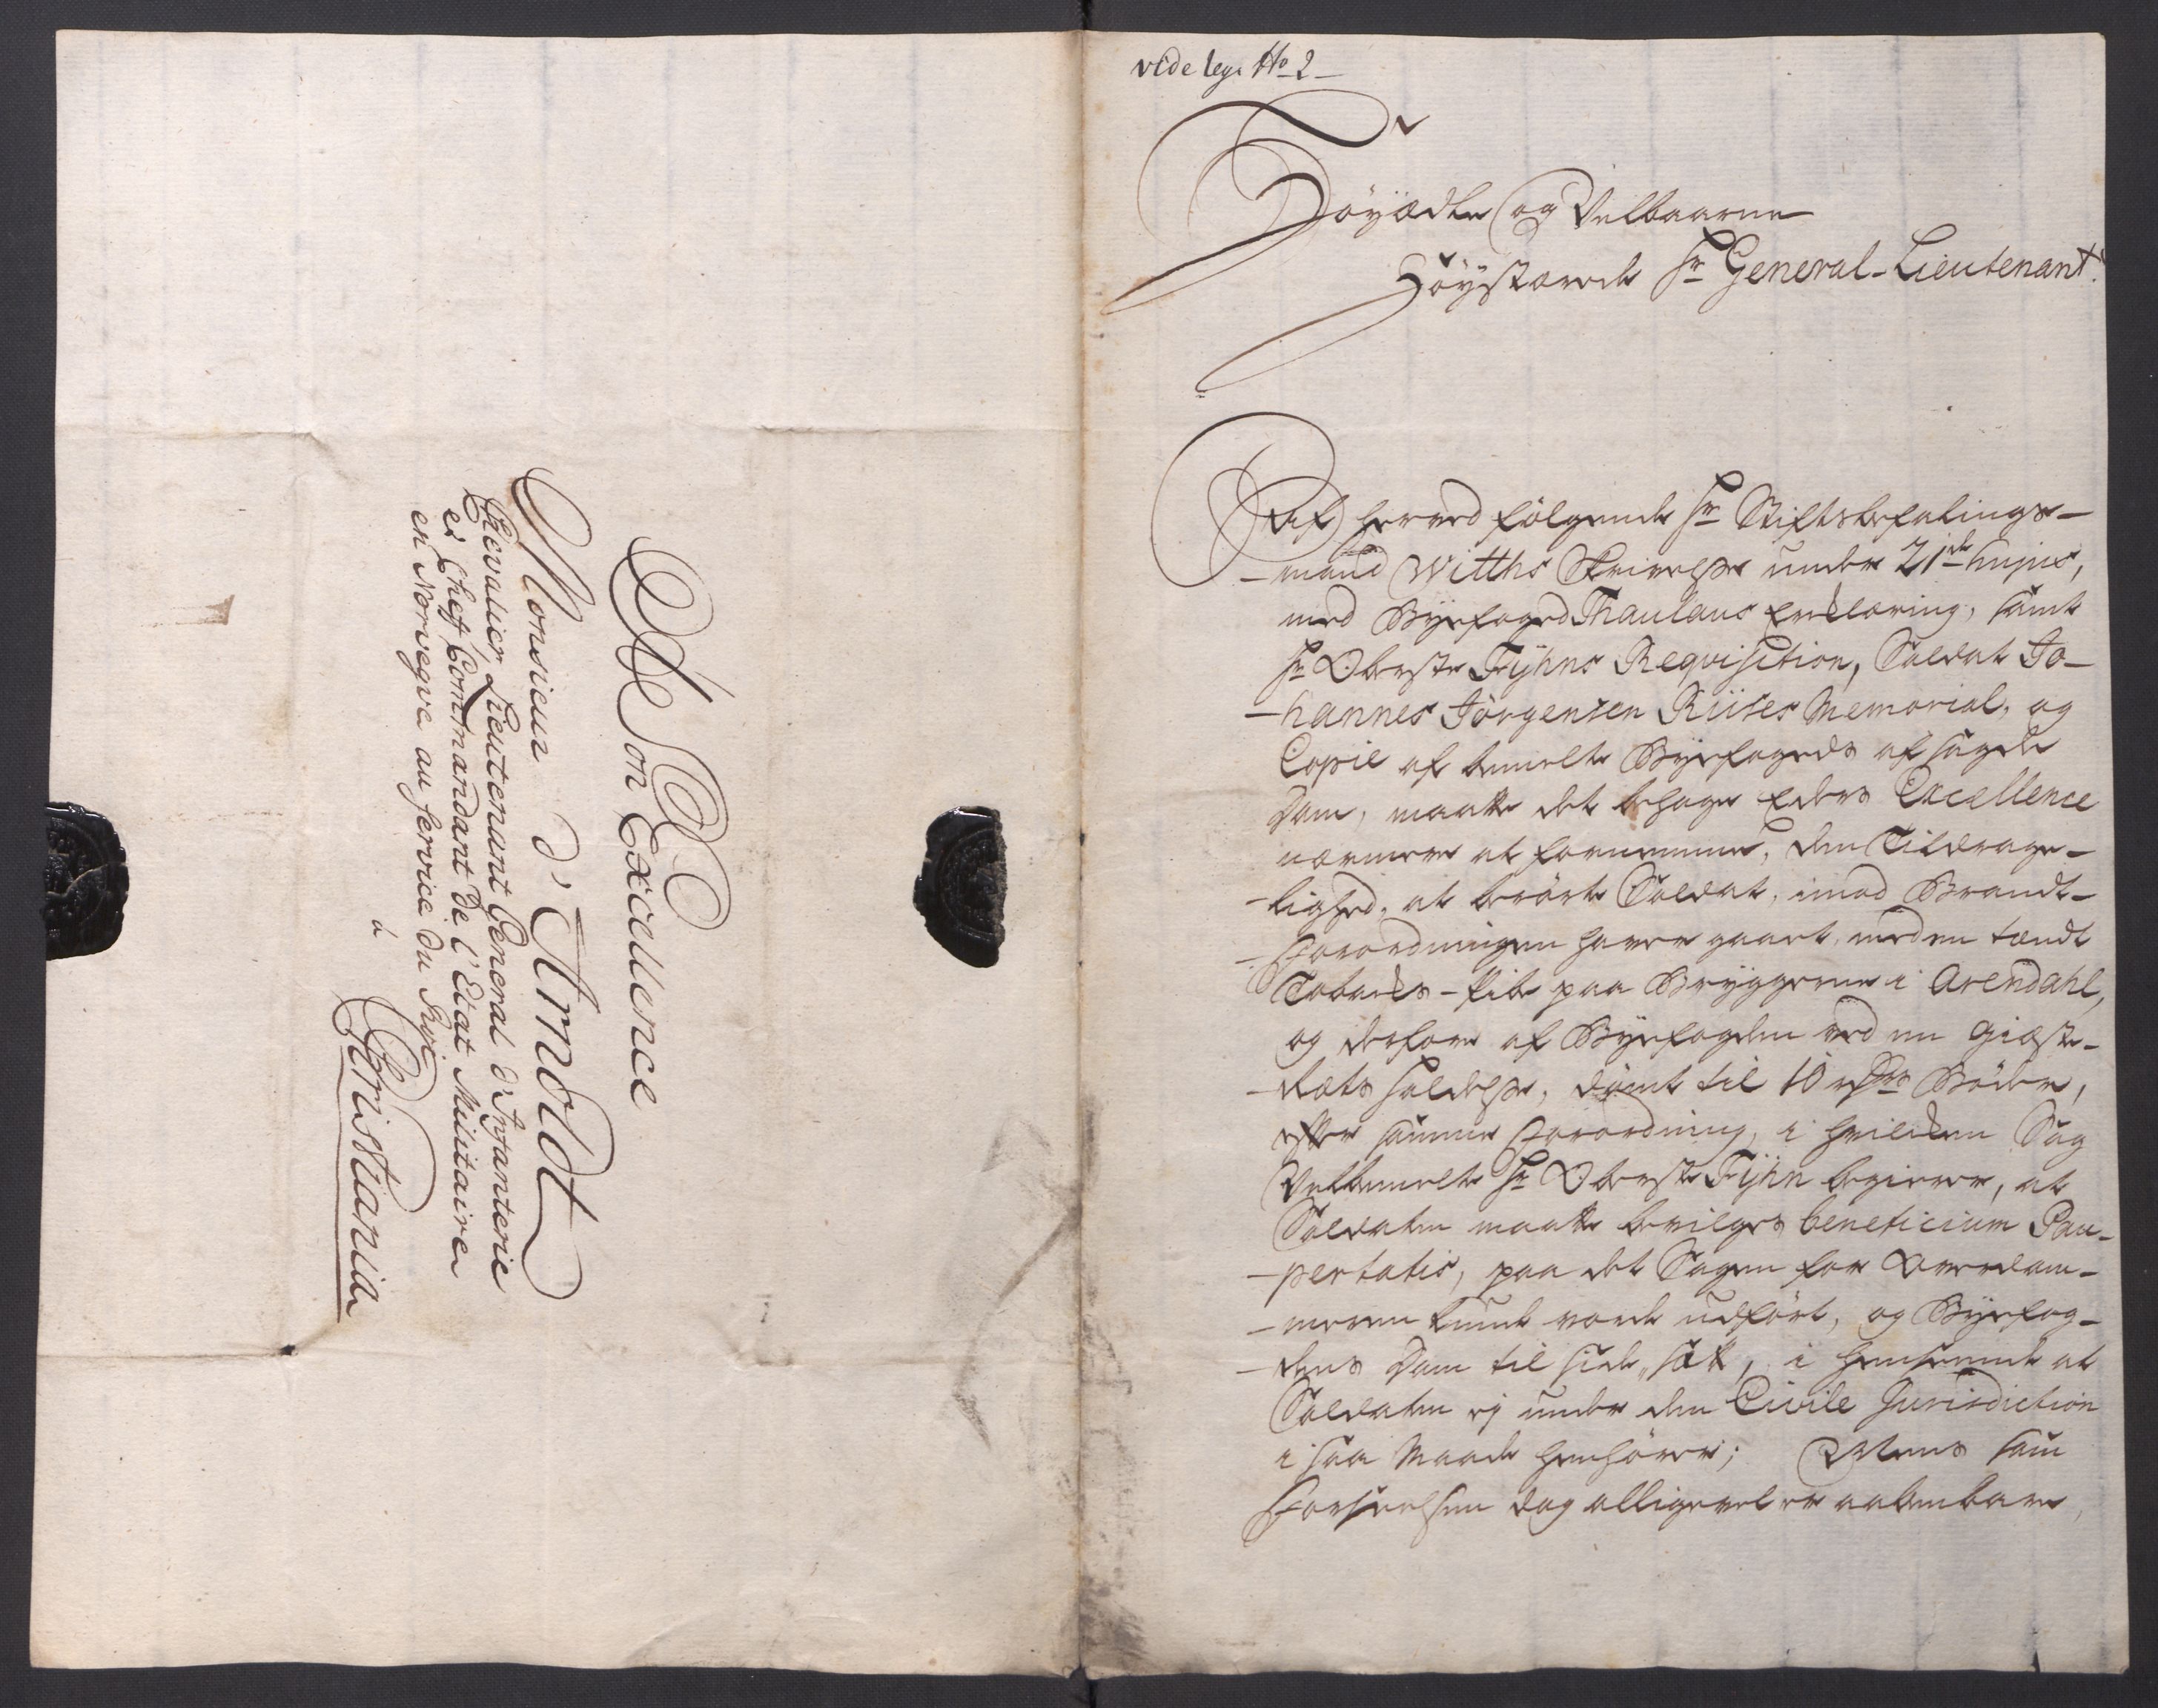 A Son Excellence
Monsieur d'Arnoldt
Chevalier, Lieutenant General d'Infanterie
et Chef Commandant de l'Etat Militaire
en Norvegve au service du Roy
à
Christiania
vide leg. No 2
Höyædle og Velbaarne
Höystærede Hr General-Lieutenant!
Af herved fölgende Hr Stiftsbefalings-
-mand Witths Skrivelse under 21de hujus,
med Byefoged Thaulaus Erklæring, samt
Hr Oberste Fyhns Reqvisition, Soldat Jo-
-hannes Jörgensen Riises Memorial, og
Copie af bemelte Byefogeds afsagde
Dom, maatte det behage Eders Excellence
nærmere at fornemme, den Tildrage-
-lighed, at berörte Soldat, imod Brandt-
-Forordningen haver gaaet med en tændt
Tobacks-Pibe paa Bryggerne i Arendahl,
og derfore af Byefogden ved en Giæste-
-Rets holdelse, dömt til 10 rdrs Böder,
efter samme Forordning, i hvilcken Sag
Velbemelte Hr Oberste Fyhn begierer, at
Soldaten maatte bevilges beneficium Pau-
-pertatis, paa det Sagen for Overdom-
-meren kunde vorde udfört, og Byefog-
-dens Dom til side satt, i henseende at
Soldaten ej under den Civile Jurisdiction
i saa Maade henhörer; Mens som
Forseelsen dog alligevel er aabenbare